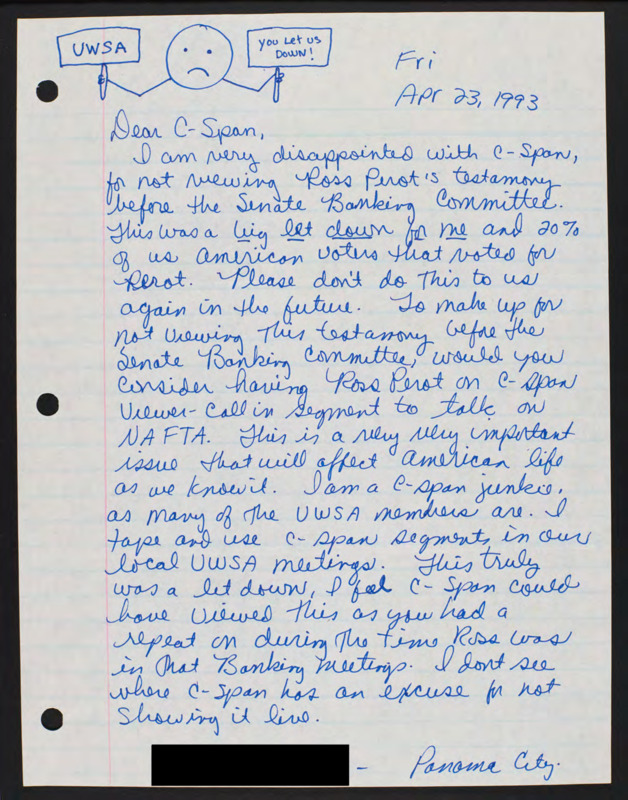 UWSA
YOU LET US
DOWN!
Fri
Apr 23, 1993
Dear C-Span,
I am very disappointed with C-Span,
for not viewing Ross Perot's testamony
before the Senate Banking Committee.
This was a big let down for me and 20%
of us American voters that voted for
Perot. Please don't do this to us
again in the future. To make up for
not viewing this testamony before the
Senate Banking Committee, would you
consider having Ross Perot on C-Span
Viewer-Call in segment to talk on
NAFTA. This is a very very important
issue that will affect American life
as we know it. I am a C-span junkie,
as many of the UWSA members are. I
tape and use C-span segments in our
local UWSA meetings. This truly
was a let down, I feel C-Span could
have viewed this as you had a
repeat on during the time Ross was
in that Banking meetings. I dont see
where C-Span has an excuse for not
showing it live.
- Panama City.